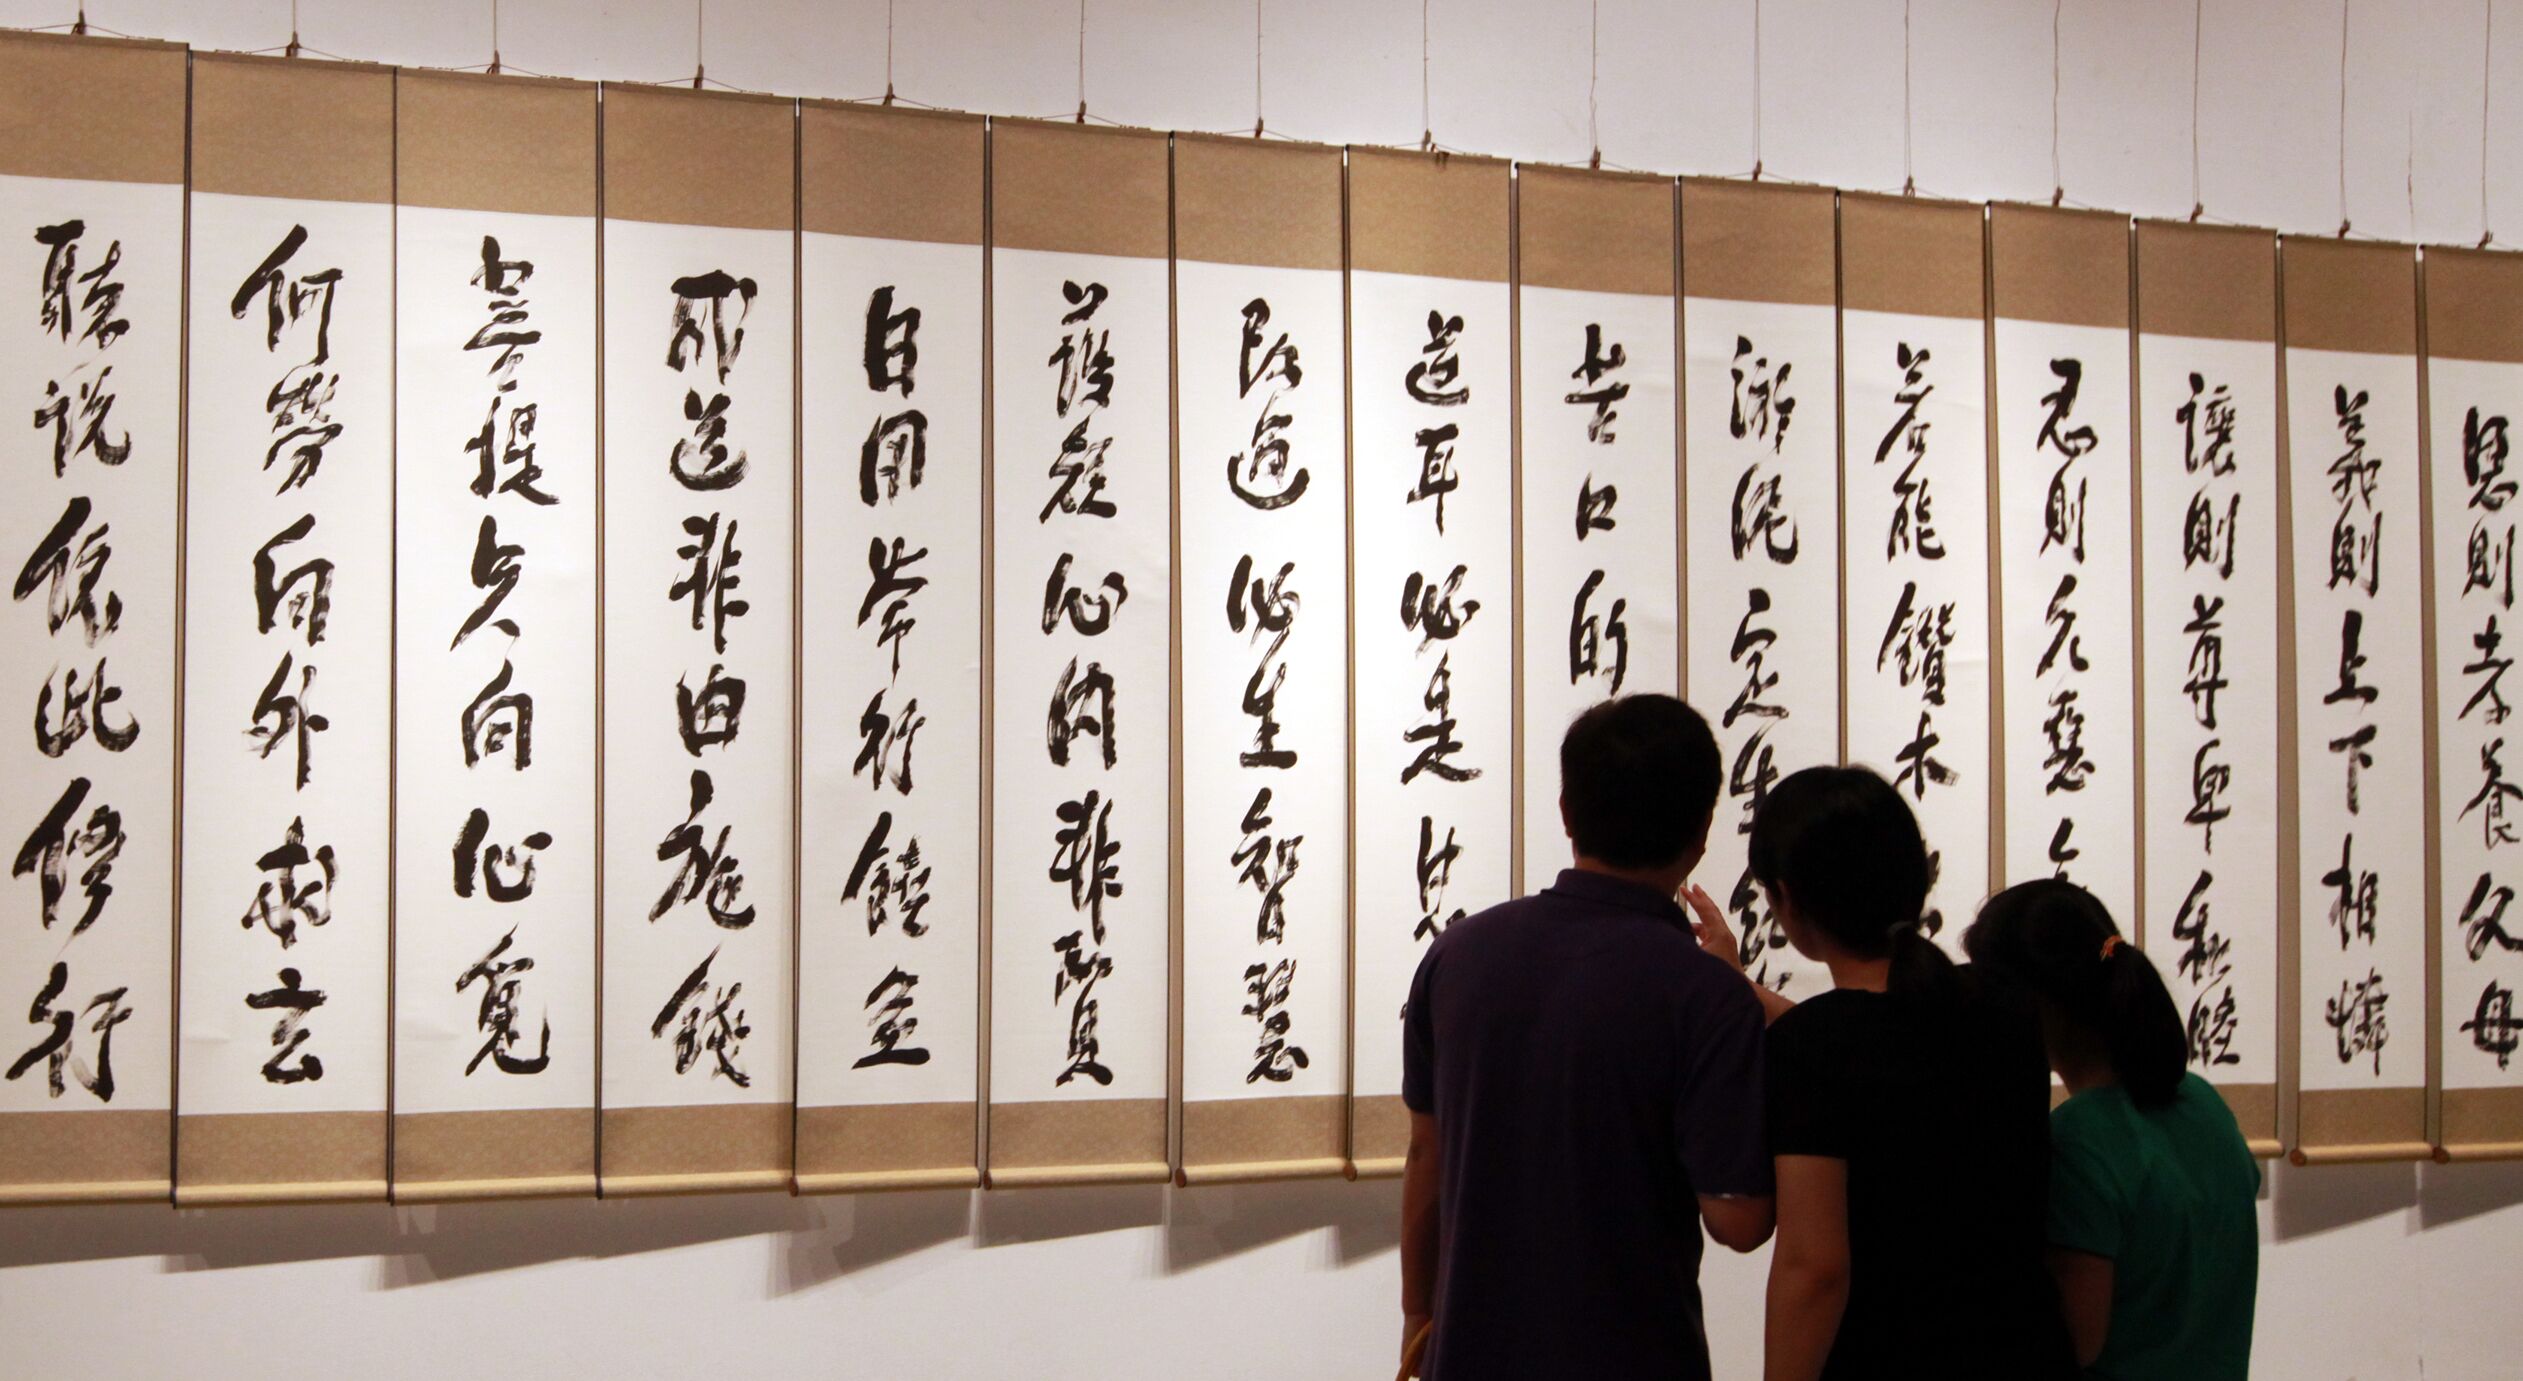 恩則孝養父母
義則上下相憐
讓則尊卑和睦
忍則众惡
若能鑽木
淤泥定生紅
苦口的
逆耳必是忠
改過必生智慧
護短心內非賢
日用常行饒益
成道非由施錢
菩提只向心覓
何勞向外求玄
聽說依此修行